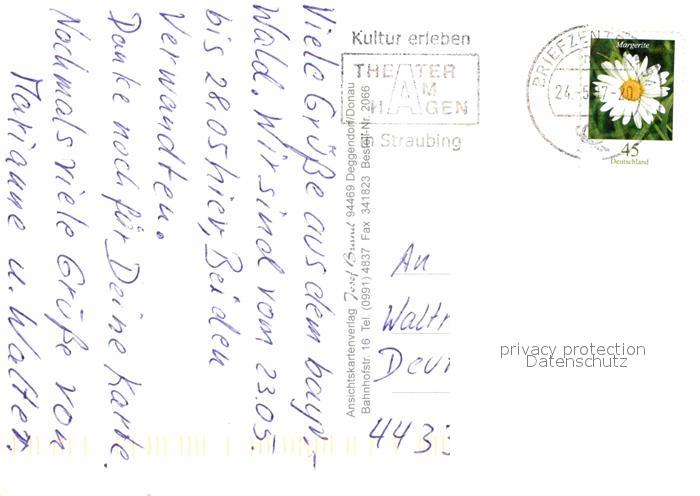 Viele Grüße aus dem bayr.
Wald. Wir sind vom 23.05.
bis 28.05 hier, Beiden
Verwandten.
Danke noch für Deine Karte.
Nochmals viele Grüße von
Marianne u. Walter.
Ansichtskartenverlag Josef Brand 94469 Deggendorf/Donau
Bahnhofstr. 16 Tel. (0991) 4837 Fax 341823 Bestell-Nr. 2066
Kultur erleben
THEATER
AM
HAGEN
in Straubing
BRIEFZENT
24.-5.
Margerite
45
Deutschland
An
Walt
Deu
443
privacy protection
Datenschutz